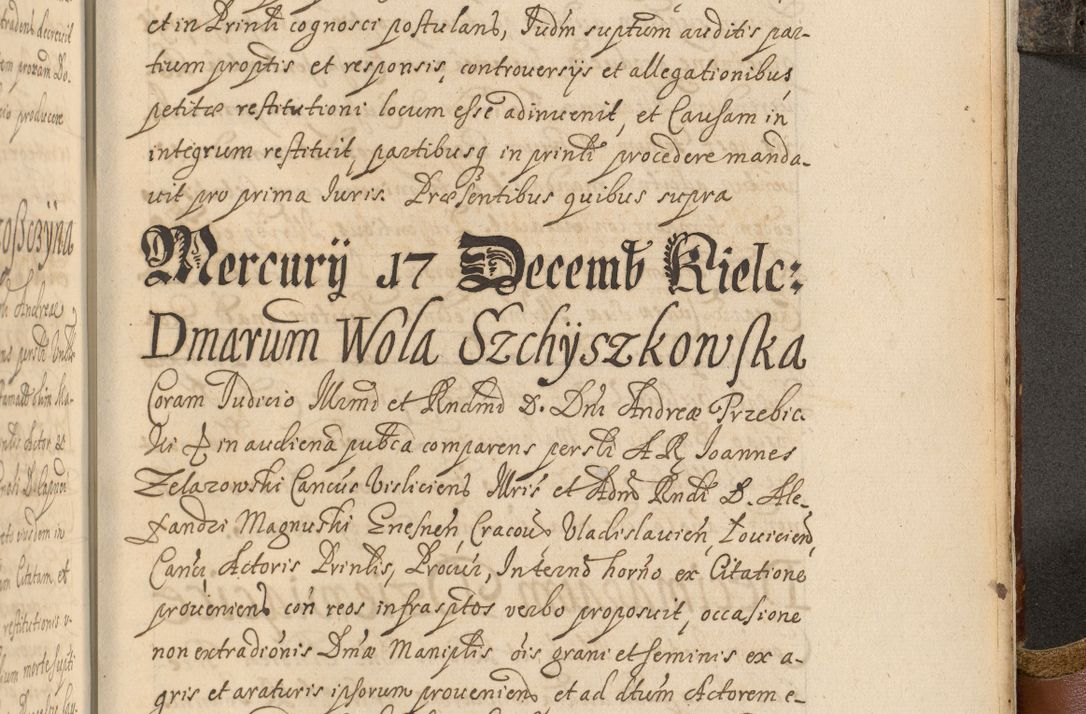 et in Prinli cognosci postulans, Judm suptum auditis par-
tium proptis et responsis, controversijs et allegationibus
petitæ restitutioni locum esse adinvenit, et Causam in
integrum restituit, partibusq in prinli procedere manda-
vit pro prima Juris. Præsentibus quibus supra
Mercurij 17 Decemb Kielc:
Dmarum Wola Szchÿszkowska
Coram Judicio Illrmi et Rndmi D. Dni Andreæ Przebic
ki in audiena pubca comparens persli A R Joannes
Zelazowski Cancus Visliciens Illris et Adm Rndi D. Ale-
xandri Magnuski Gnesnen, Cracov Vladislavien, Lovicien
Canci Actoris Prinlis, Procur, In termo horno ex Citatione
proveniens con reos infrasptos verbo proposuit, occasione
non extradionis Dmæ Maniplis ois grani et seminis ex a-
gris et araturis ipsorum proveniens, et ad dtum Actorem e-
tradens decrevit
producere
Andreæ
Actor
eiusdem in
Citatum et
restitutionis